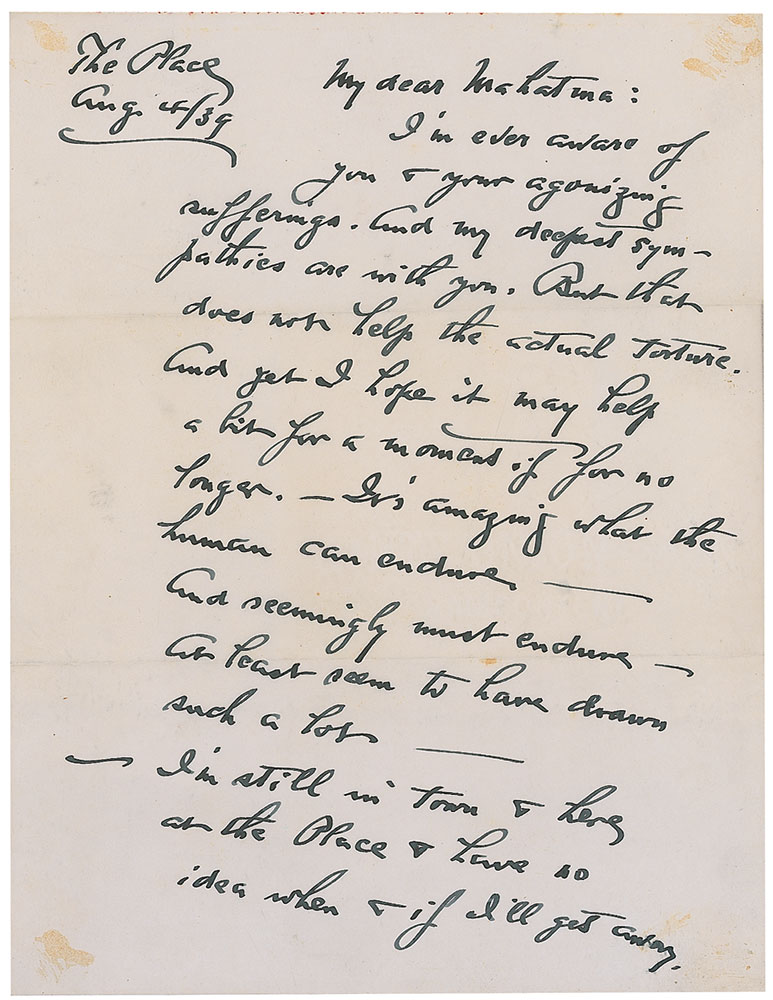 The Place
Aug. 4/39
My dear Mahatma:
I'm ever aware of
you & your agonizing
sufferings. And my deepest sym-
pathies are with you. But that
does not help the actual torture.
And yet I hope it may help
a bit for a moment if for no
longer. — It's amazing what the
human can endure. —
And seemingly must endure —
At least seem to have drawn
such a lot —
— I'm still in town & here
at the Place & have no
idea when & if I'll get away.